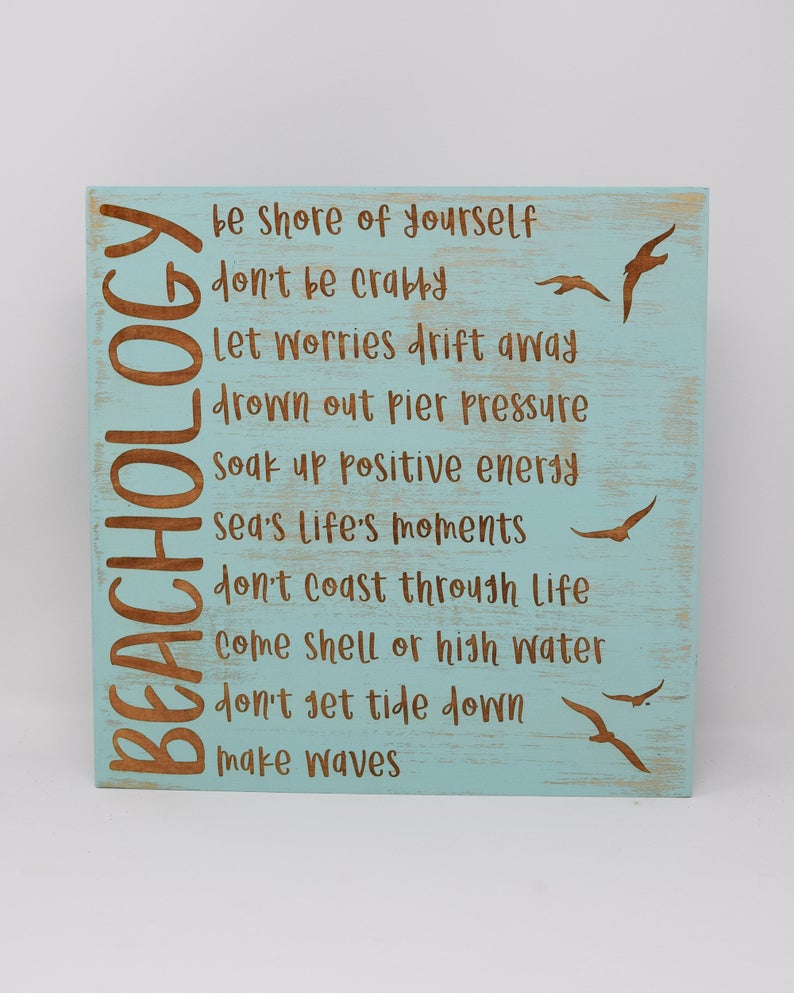 BEACHOLOGY
be shore of yourself
don't be crabby
let worries drift away
drown out pier pressure
soak up positive energy
sea's life's moments
don't coast through life
come shell or high water
don't get tide down
make waves